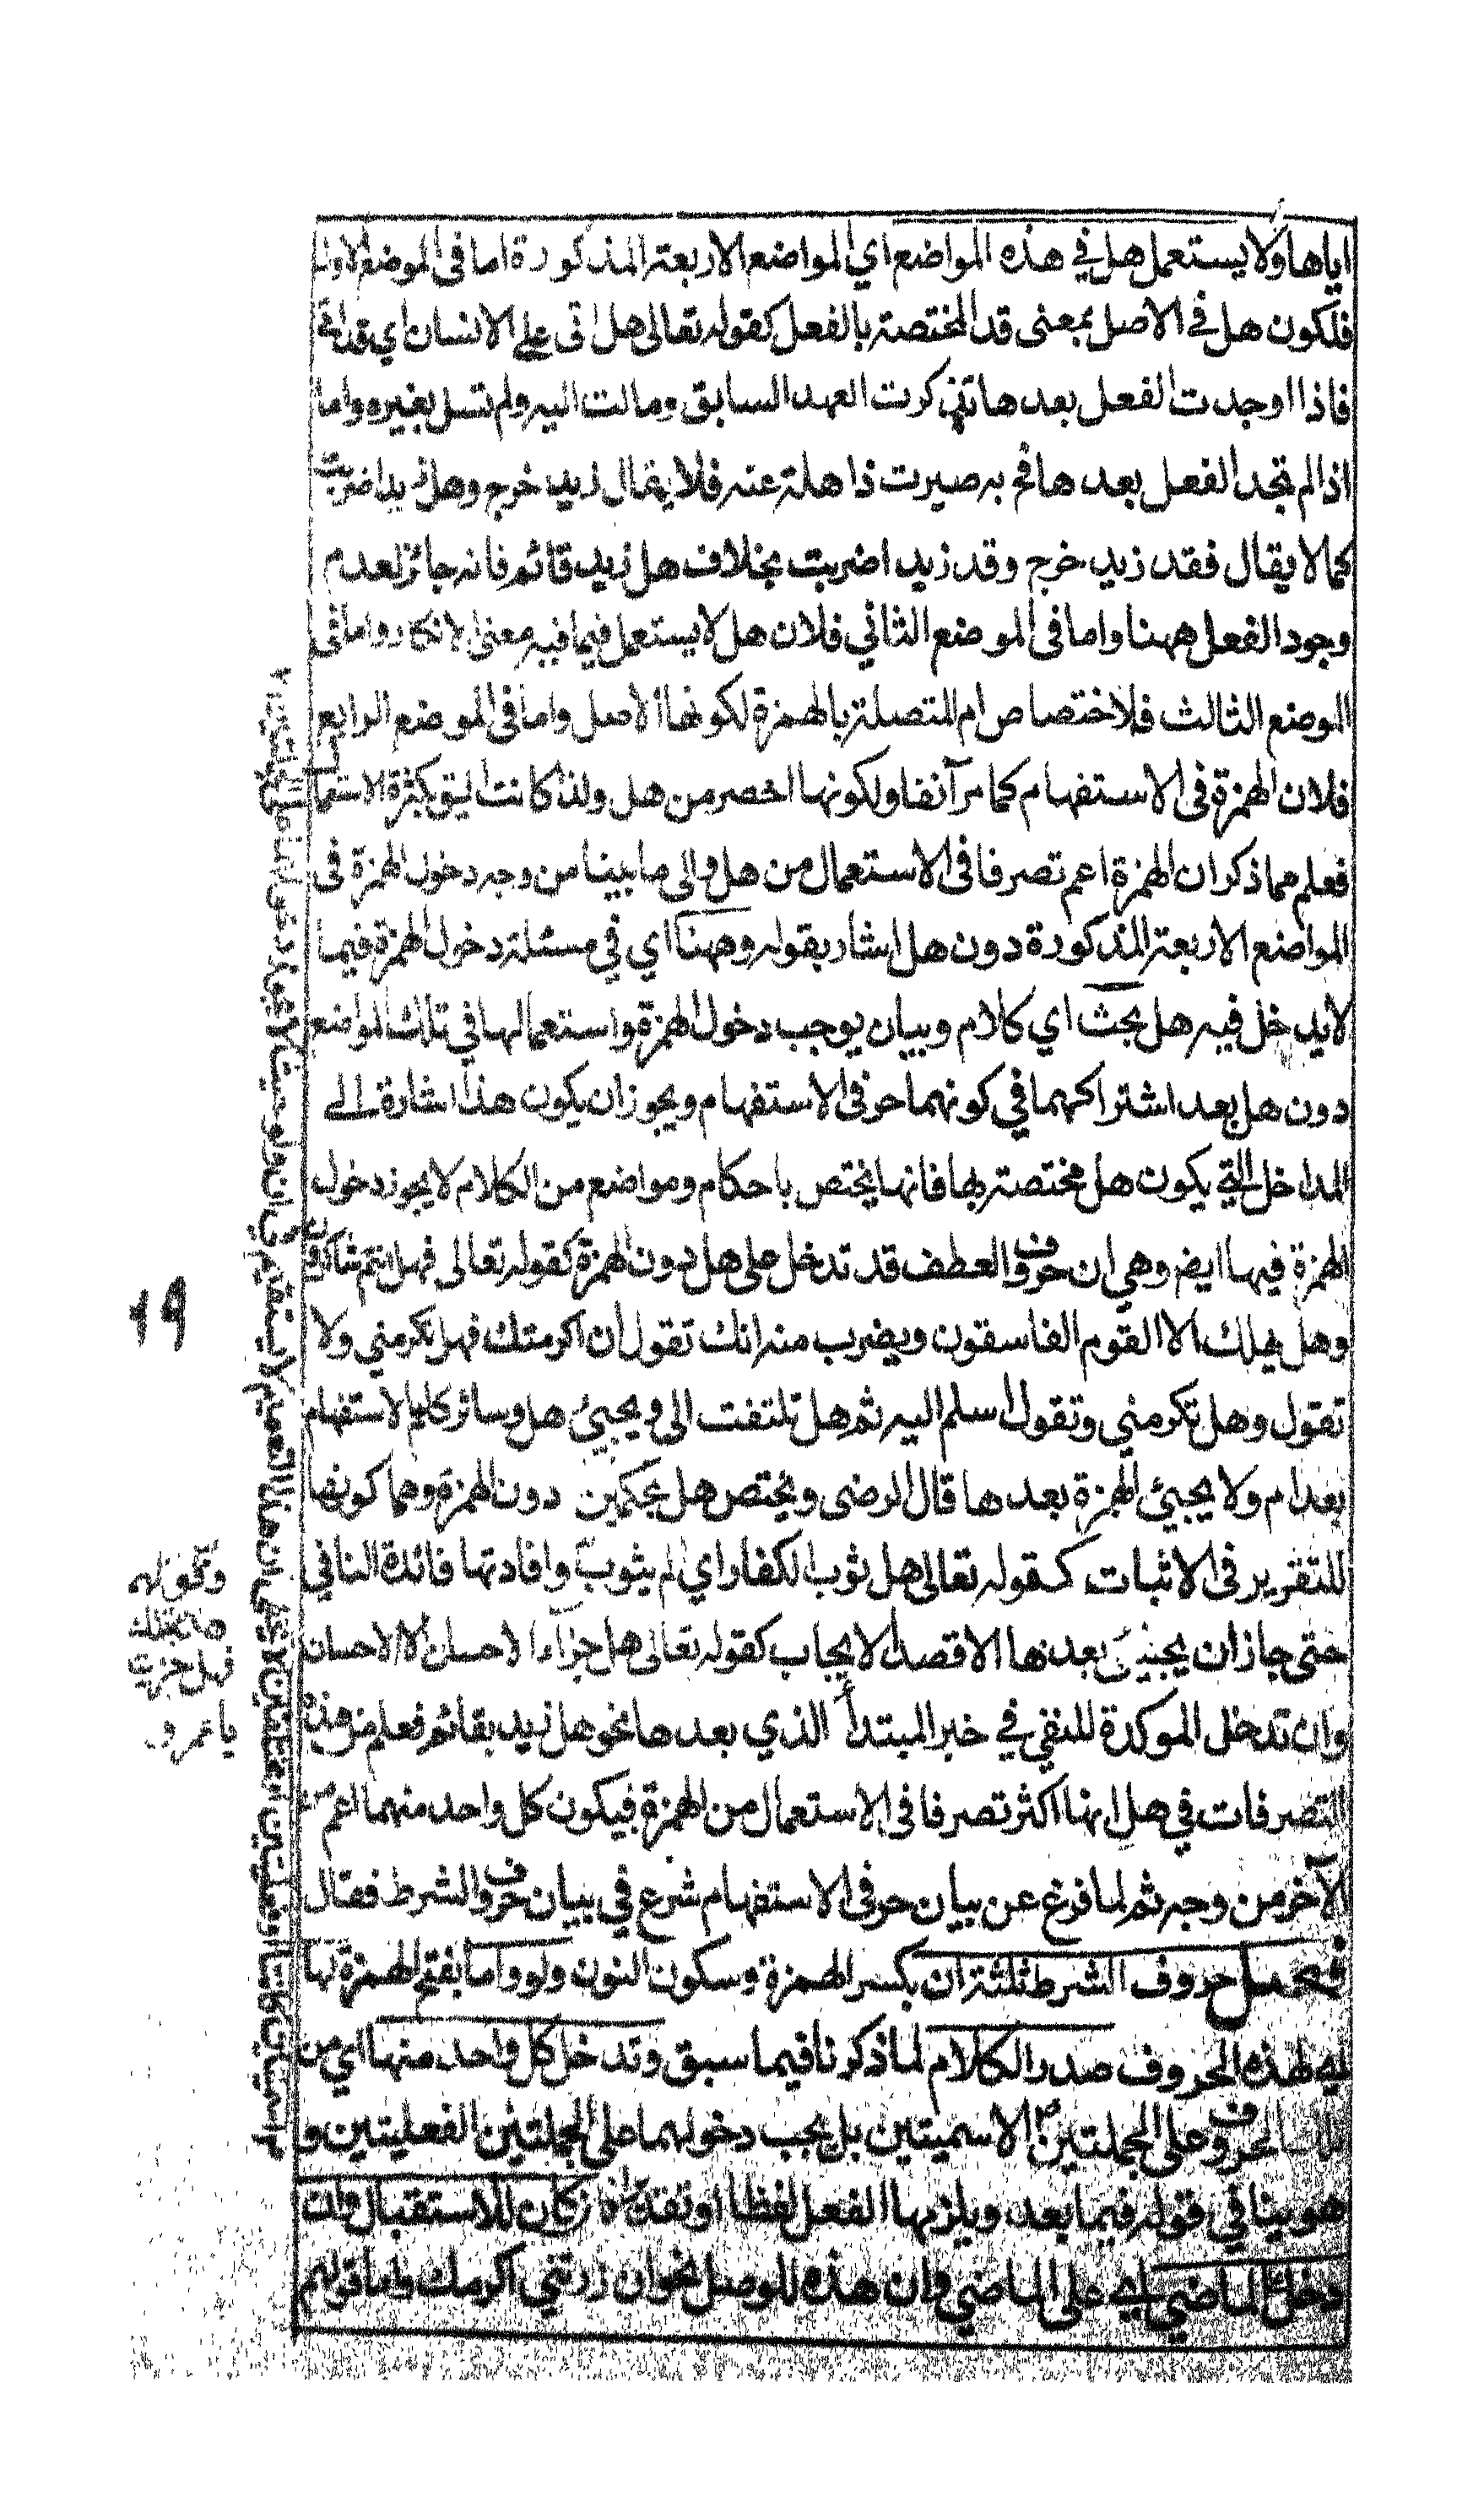 اياها ولا يستعمل هل في هذه المواضع اي المواضع الاربعة المذكورة اما في الموضع الاول
فلكون هل في الاصل بمعنى قد المختصة بالفعل كقوله تعالى هل اتى على الانسان اي قد اتى
فاذا اوجدت الفعل بعدها تذكرت العهد السابق ومالت اليه ولم تسل بغيره واما
اذا لم تجد الفعل بعدها فح به صيرت ذاهلة عنه فلا يقال زيد خرج وهل زيدا ضربت
كما لا يقال فقد زيد خرج وقد زيدا ضربت بخلاف هل زيد قائم فانه جائز لعدم
وجود الفعل ههنا واما في الموضع الثاني فلان هل لا يستعمل فيما فيه معنى الانكار واما في
الموضع الثالث فلاختصاص ام المتصلة بالهمزة لكونها الاصل واما في الموضع الرابع
فلان الهمزة في الاستفهام كما مر آنفا ولكونها اخصر من هل ولذا كانت اليق بكثرة الاستعمال
فعلم مما ذكر ان الهمزة اعم تصرفا في الاستعمال من هل والى ما بينا من وجه دخول الهمزة في
المواضع الاربعة المذكورة دون هل اشار بقوله وههنا اي في مسئلة دخول الهمزة فيما
لا يدخل فيه هل بحث اي كلام وبيان يوجب دخول الهمزة واستعمالها في تلك المواضع
دون هل بعد اشتراكهما في كونهما حرفي الاستفهام ويجوز ان يكون هذا اشارة الى
المداخل التي يكون هل مختصة بها فانها يختص باحكام ومواضع من الكلام لا يجوز دخول
الهمزة فيها ايض وهي ان حروف العطف قد تدخل على هل دون الهمزة كقوله تعالى فهل انتم شاكرون
وهل يهلك الا القوم الفاسقون ويضرب منه انك تقول ان اكرمتك فهل تكرمني ولا
تقول وهل تكرمني وتقول اسلم اليه ثم هل تلتفت الى ويجيئ هل وسائر كلم الاستفهام
بعد ام ولا يجيئ الهمزة بعدها قال الرضى ويختص هل بحكمين دون الهمزة وهما كونها
للتقرير في الاثبات كقوله تعالى هل ثوب الكفار اي الم يثوب وافادتها فائدة النافي
حتى جاز ان يجيئ بعدها الا قصدا لايجاب كقوله تعالى هل جزاء الاحسان الا الاحسان
وان تدخل الموكدة للنفي في خبر المبتدأ الذي بعدها نحو هل زيد بقائم فعلم من هذه
التصرفات في هل انها اكثر تصرفا في الاستعمال من الهمزة فيكون كل واحد منهما اعم من
الآخر من وجه ثم لما فرغ عن بيان حرفي الاستفهام شرع في بيان حروف الشرط فقال
فصل حروف الشرط ثلثة ان بكسر الهمزة وسكون النون ولو واما بفتح الهمزة لها
اي لهذه الحروف صدر الكلام لما ذكرنا فيما سبق وتدخل كل واحد منها اي من
الحروف على الجملتين الاسميتين بل يجب دخولهما على الجملتين الفعليتين و
هو ينافي قوله فيما بعد ويلزمها الفعل لفظا او تقديرا فان للاستقبال وان
دخل الماضي اي على الماضي وان هذه للوصل نحو ان زرتني اكرمك واما قولهم
١٩
وتقول
فهل ضربت
يا عمرو